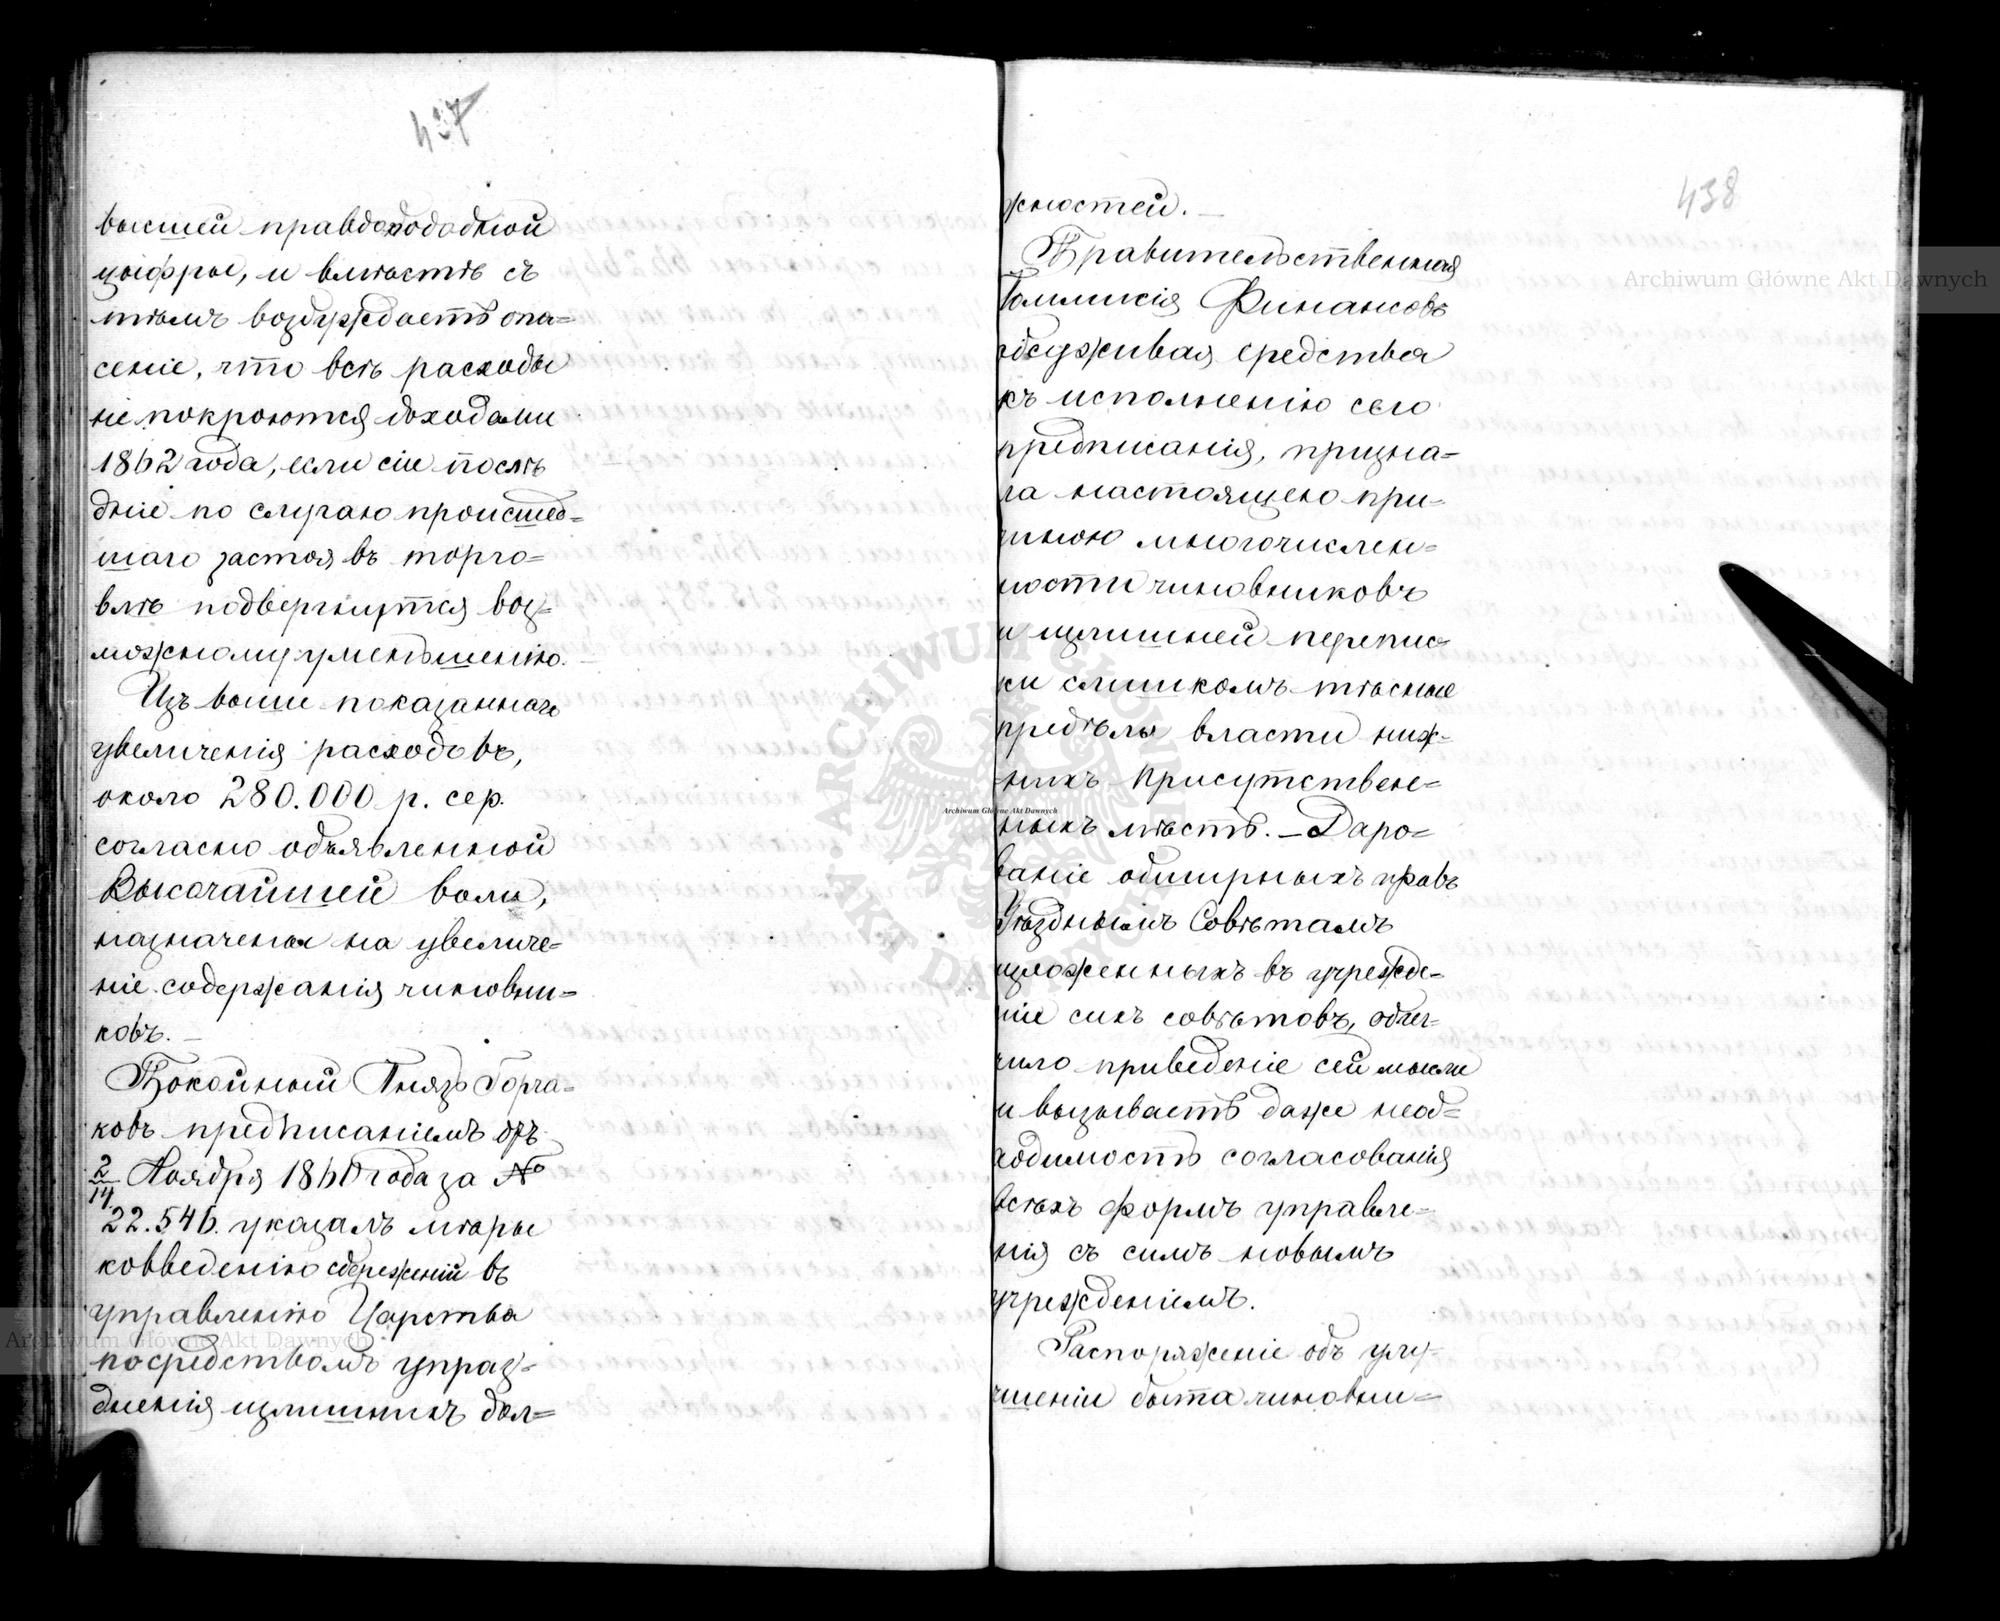 437
высшей правдоподобной
цыфры, и вмѣстѣ съ
тѣмъ возбуждаетъ опа=
сеніе, что всѣ расходы
не покроются доходами
1862 года, если сіи послѣ
дніе по случаю происшед=
шаго застоя въ торго=
влѣ подвергнутся воз=
можному уменьшенію.
Изъ выше показаннаго
увеличенія расходовъ,
около 280.000 р. сер.
согласно объявленной
Высочайшей воли,
назначены на увеличе=
ніе содержанія чиновни=
ковъ. —
Покойный Князь Горча=
ковъ предписаніемъ отъ
2/14 Ноября 1860 года за №
22.546. указалъ мѣры
ко введенію сбереженій въ
управленію Царства
посредствомъ упраз=
дненія излишнихъ дол=
438
жностей. —
Правительственная
Коммисія Финансовъ
обсуживая средства
къ исполненію сего
предписанія, призна=
ла настоящею при=
чиною многочислен=
ности чиновниковъ
и излишней перепис
ки слишкомъ тѣсные
предѣлы власти ниж=
нихъ присутствен=
ныхъ мѣстъ. — Даро=
ваніе обширныхъ правъ
Уѣзднымъ Совѣтамъ
изложенныхъ въ учрежде=
ніе сихъ совѣтовъ, облег=
чило приведеніе сей мысли
и вызываетъ даже необ=
ходимость согласованія
всѣхъ формъ управле=
нія съ симъ новымъ
учрежденіемъ.
Распоряженіе объ улу=
чшеніи быта чиновни=
Archiwum Główne Akt Dawnych
Archiwum Główne Akt Dawnych
Archiwum Główne Akt Dawnych
ARCHIWUM GŁÓWNE AKT DAWNYCH